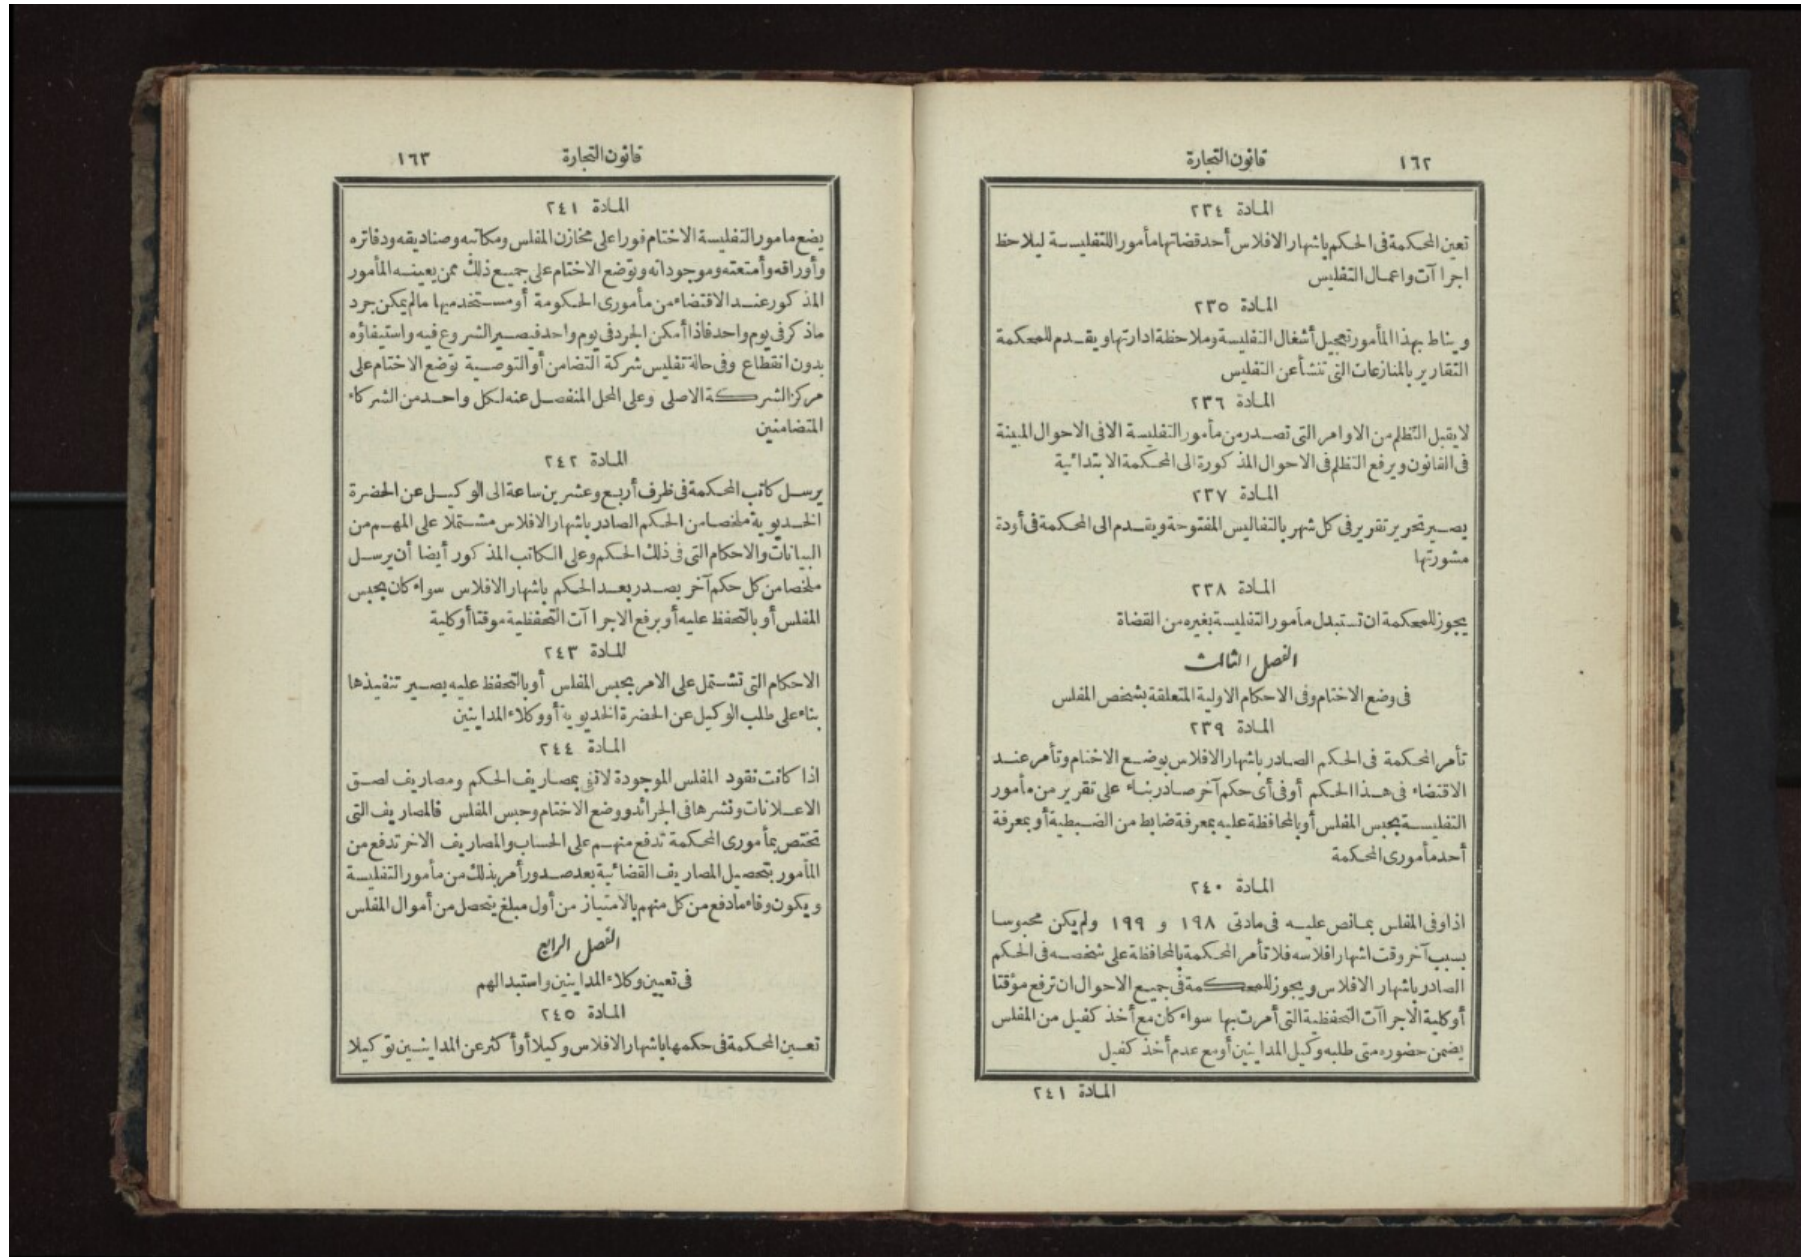 ١٦٢
قانون التجارة
المادة ٢٣٤
تعين المحكمة فى الحكم باشهار الافلاس أحد قضاتها مأمور اللتفليسة ليلاحظ
اجرا آت واعمال التفليس
المادة ٢٣٥
ويناط بهذا المأمور تعجيل أشغال التفليسة وملاحظة ادارتها ويقدم للمحكمة
التقارير بالمنازعات التى تنشأ عن التفليس
المادة ٢٣٦
لا يقبل التظلم من الاوامر التى تصدر من مأمور التفليسة الا فى الاحوال المبينة
فى القانون ويرفع التظلم فى الاحوال المذكورة الى المحكمة الابتدائية
المادة ٢٣٧
يصير تحرير تقرير فى كل شهر بالتفاليس المفتوحة ويقدم الى المحكمة فى أودة
مشورتها
المادة ٢٣٨
يجوز للمحكمة ان تستبدل مأمور التفليسة بغيره من القضاة
الفصل الثالث
فى وضع الاختام وفى الاحكام الاولية المتعلقة بشخص المفلس
المادة ٢٣٩
تأمر المحكمة فى الحكم الصادر باشهار الافلاس بوضع الاختام وتأمر عند
الاقتضاء فى هذا الحكم أو فى أى حكم آخر صادر بناء على تقرير من مأمور
التفليسة بحبس المفلس أو بالمحافظة عليه بمعرفة ضابط من الضبطية أو بمعرفة
أحد مأمورى المحكمة
المادة ٢٤٠
اذا وفى المفلس بما نص عليه فى مادتى ١٩٨ و ١٩٩ ولم يكن محبوسا
بسبب آخر وقت اشهار افلاسه فلا تأمر المحكمة بالمحافظة على شخصه فى الحكم
الصادر باشهار الافلاس ويجوز للمحكمة فى جميع الاحوال ان ترفع مؤقتا
أو كلية الاجراآت التحفظية التى أمرت بها سواء كان مع أخذ كفيل من المفلس
يضمن حضوره متى طلبه وكيل المداينين أو مع عدم أخذ كفيل
المادة ٢٤١
قانون التجارة
١٦٣
المادة ٢٤١
يضع مامور التفليسة الاختام فورا على مخازن المفلس ومكاتبه وصناديقه ودفاتره
وأوراقه وأمتعته وموجوداته وتوضع الاختام على جميع ذلك ممن يعينه المأمور
المذكور عند الاقتضاء من مأمورى الحكومة أو مستخدميها ما لم يمكن جرد
ما ذكر فى يوم واحد فاذا أمكن الجرد فى يوم واحد فيصير الشروع فيه واستيفاؤه
بدون انقطاع وفى حالة تفليس شركة التضامن أو التوصية توضع الاختام على
مركز الشركة الاصلى وعلى المحل المنفصل عنه لكل واحد من الشركاء
المتضامنين
المادة ٢٤٢
يرسل كاتب المحكمة فى ظرف أربع وعشرين ساعة الى الوكيل عن الحضرة
الخديوية ملخصا من الحكم الصادر باشهار الافلاس مشتملا على المهم من
البيانات والاحكام التى فى ذلك الحكم وعلى الكاتب المذكور أيضا أن يرسل
ملخصا من كل حكم آخر يصدر بعد الحكم باشهار الافلاس سواء كان بحبس
المفلس أو بالتحفظ عليه أو برفع الاجرا آت التحفظية موقتا أو كلية
المادة ٢٤٣
الاحكام التى تشتمل على الامر بحبس المفلس أو بالتحفظ عليه يصير تنفيذها
بناء على طلب الوكيل عن الحضرة الخديوية أو وكلاء المداينين
المادة ٢٤٤
اذا كانت نقود المفلس الموجودة لا تفى بمصاريف الحكم ومصاريف لصق
الاعلانات ونشرها فى الجرائد ووضع الاختام وحبس المفلس فالمصاريف التى
تختص بمأمورى المحكمة تدفع منهم على الحساب والمصاريف الاخر تدفع من
المأمور بتحصيل المصاريف القضائية بعد صدور أمر بذلك من مأمور التفليسة
ويكون وفاء ما دفع من كل منهم بالامتياز من أول مبلغ يتحصل من أموال المفلس
الفصل الرابع
فى تعيين وكلاء المداينين واستبدالهم
المادة ٢٤٥
تعين المحكمة فى حكمها باشهار الافلاس وكيلا أو أكثر عن المداينين توكيلا